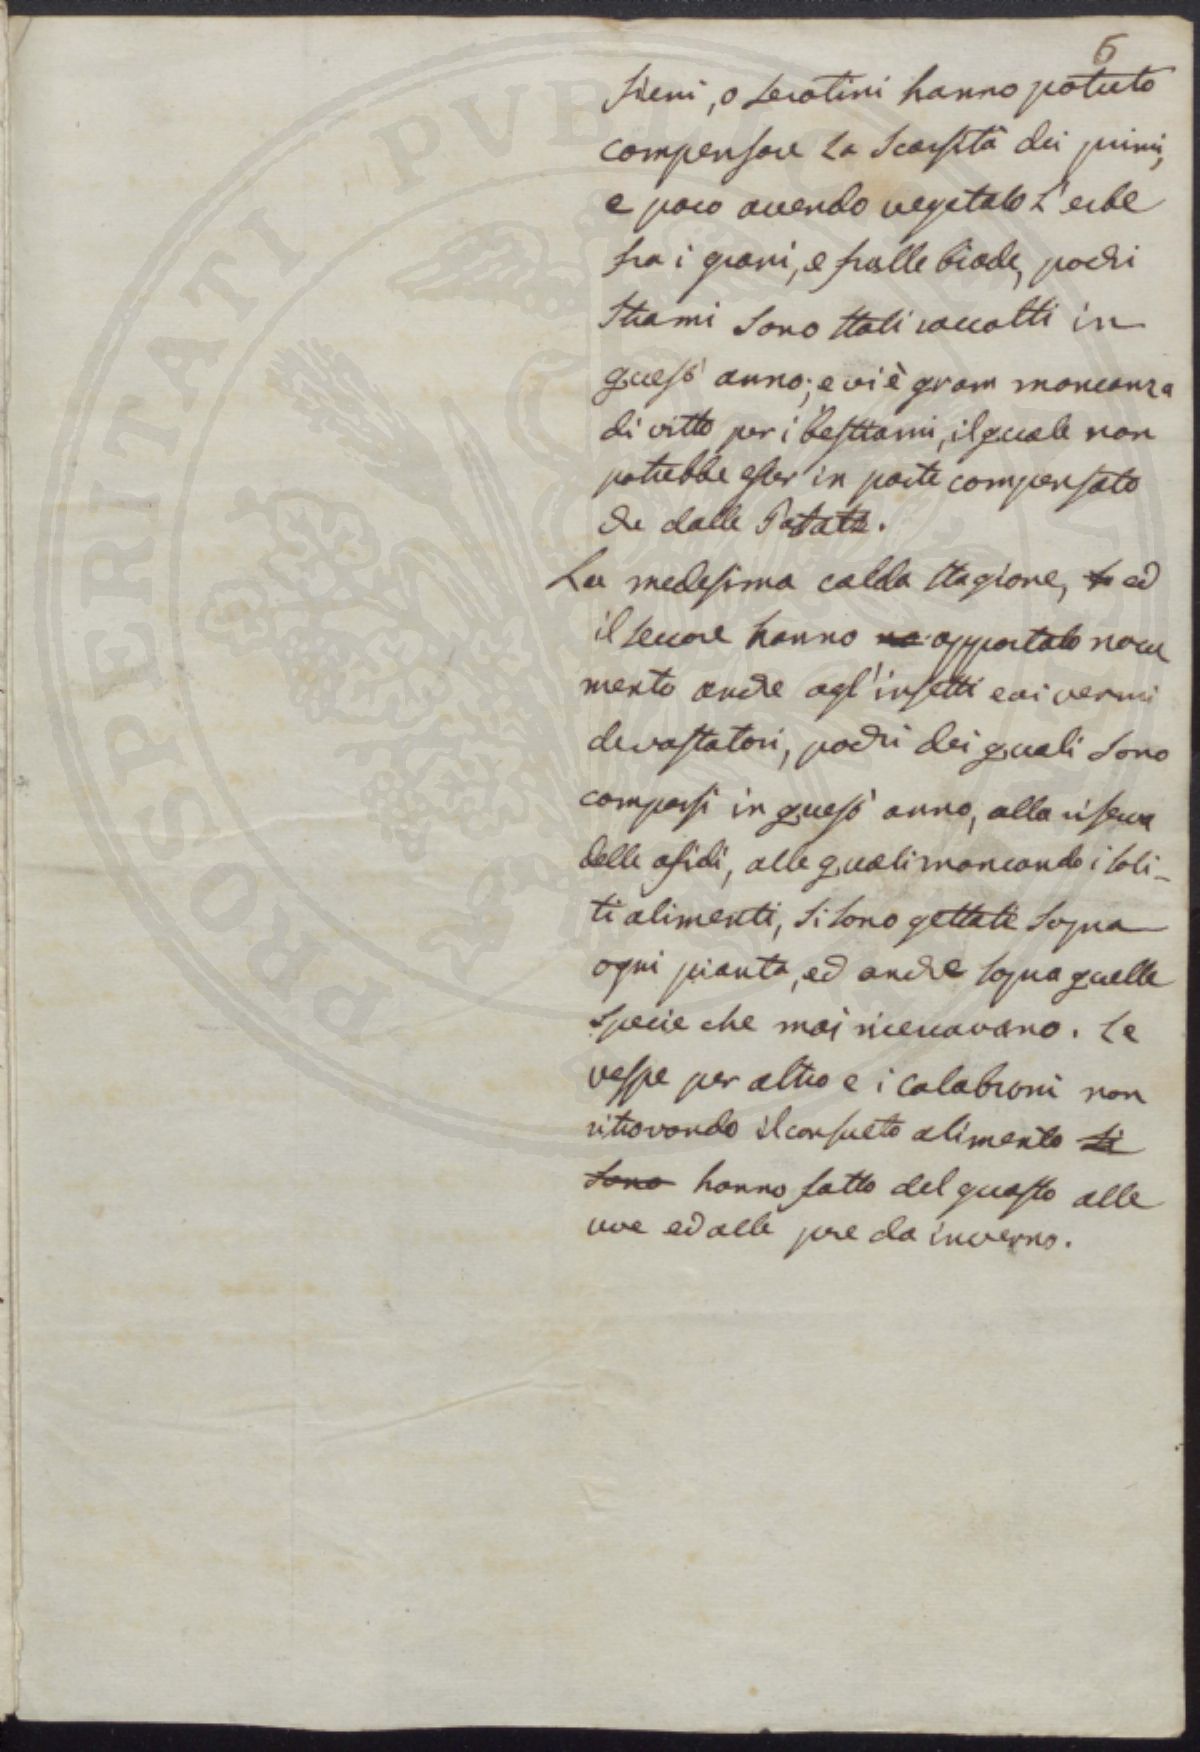 6
fieni, o serotini hanno potuto
compensare La Scarsità dei primi,
e poco avendo vegetato L'erbe
fra i grani, e fralle biade, pochi
Strami Sono stati raccolti in
quest' anno; e vi è gram mancanza
di vitto per i bestiami, il quale non
potrebbe esser in parte compensato
che dalle Patate.
La medesima calda stagione, ed
il seccore hanno apportato nocu
mento anche agl'insetti e ai vermi
devastatori, pochi dei quali Sono
comparsi in quest' anno, alla riserva
delle afidi, alle quali mancando i soli-
ti alimenti, Si sono gettate Sopra
ogni pianta, ed anche sopra quelle
Specie che mai ricercavano. Le
vespe per altro e i calabroni non
ritrovando il consueto alimento si
sono hanno fatto del guasto alle
uve ed alle pere da inverno.
PROSPERITATI PVBLICAE